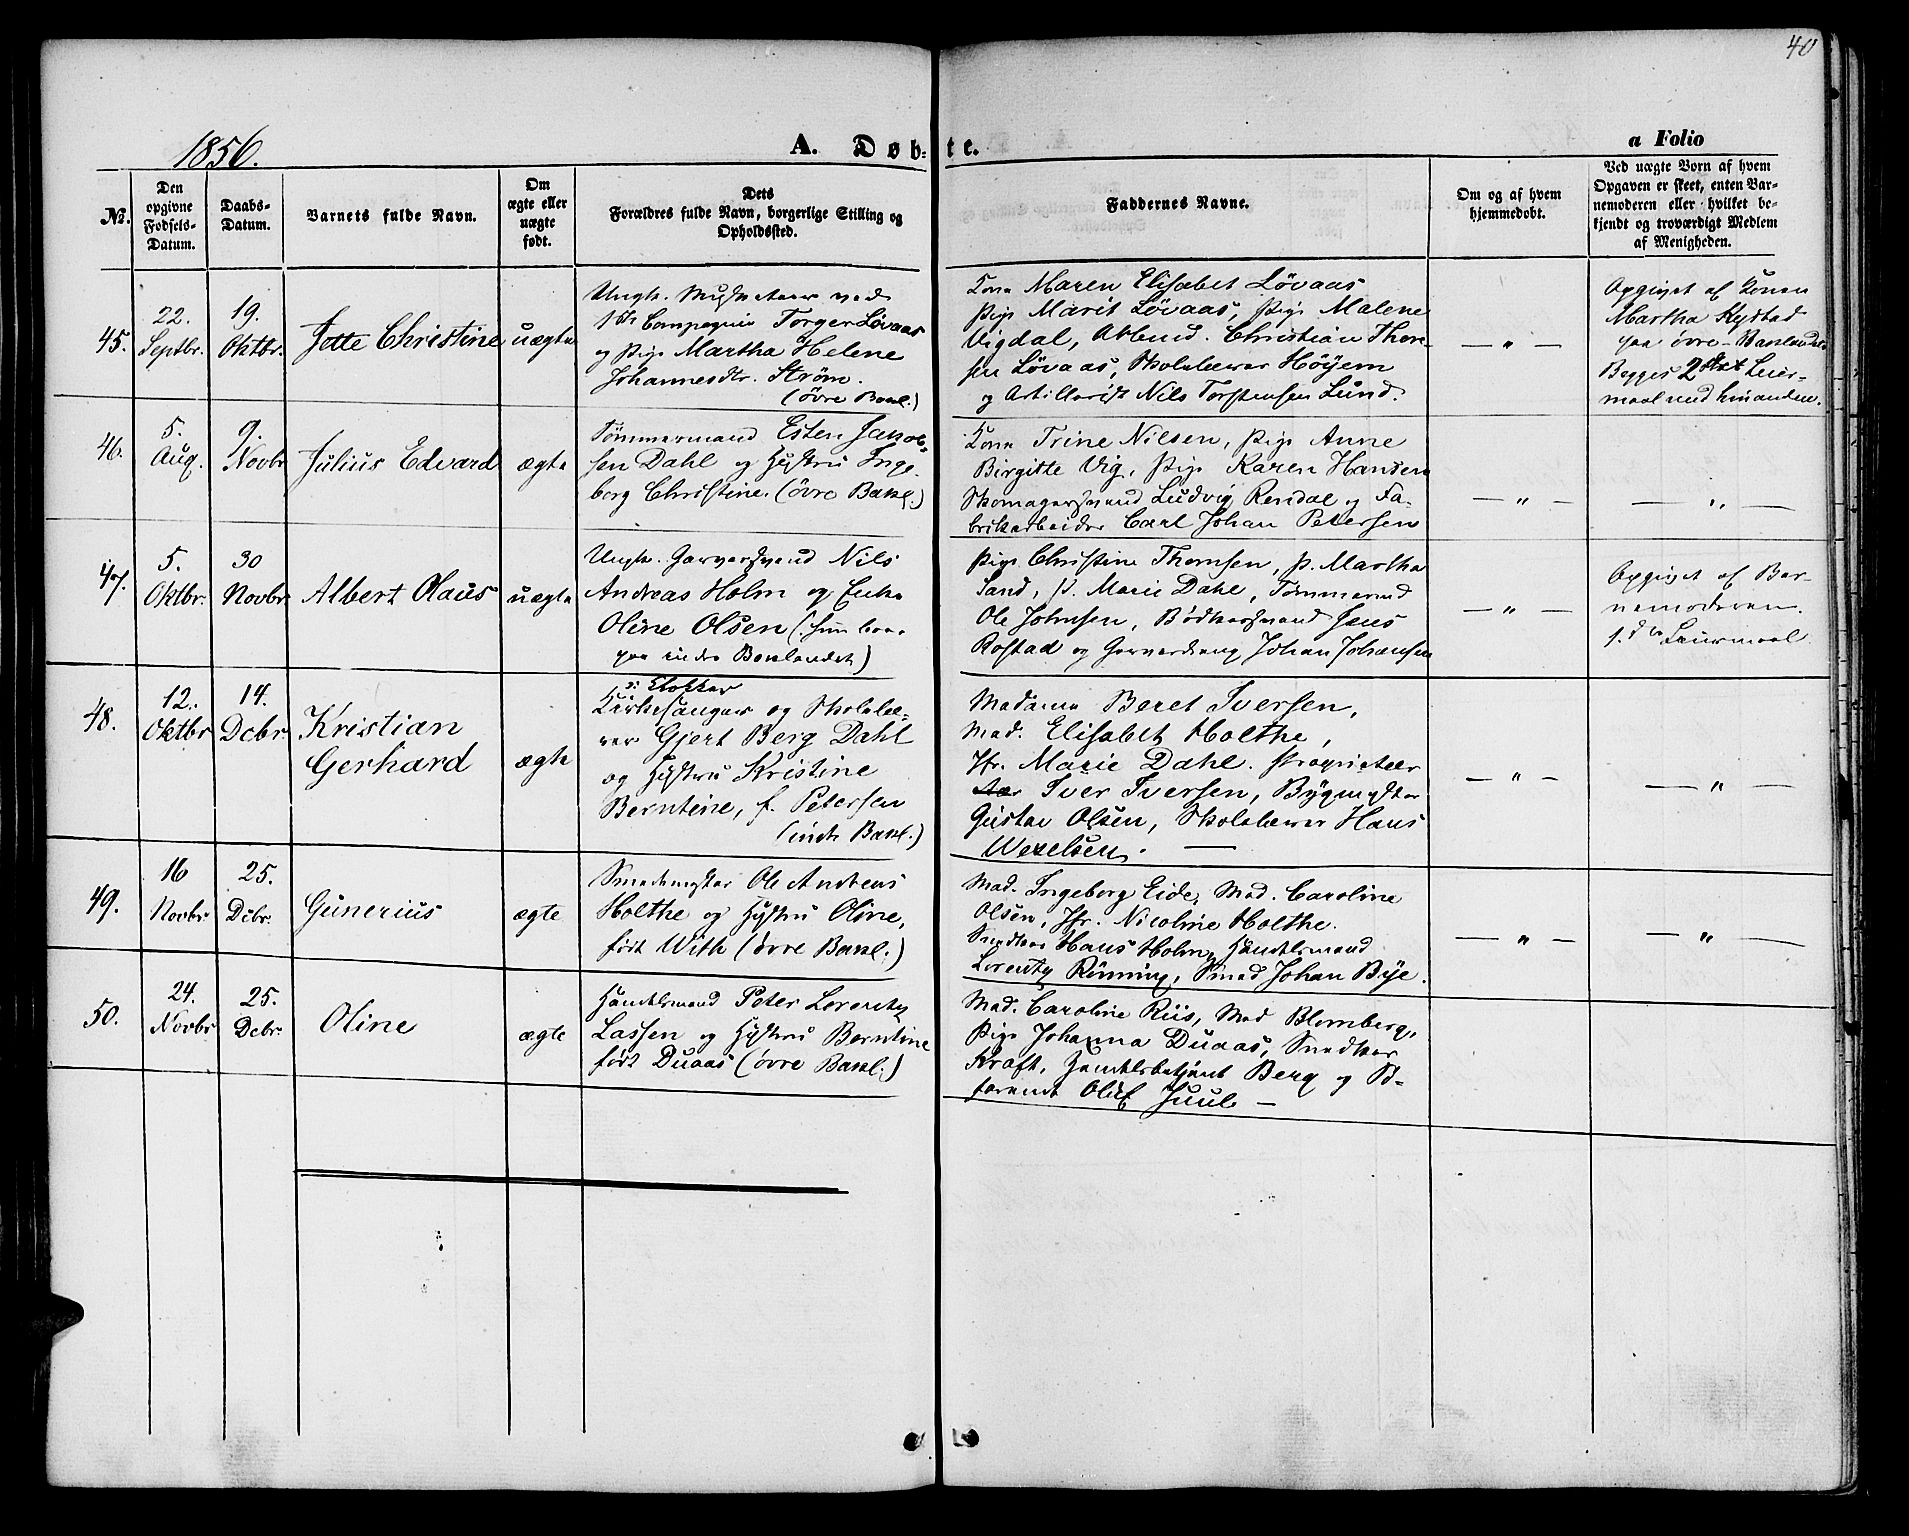 40
1856.
A. Døb-
te.
a Folio
No.
Den
opgivne
Fødsels-
Datum.
Daabs-
Datum.
Barnets fulde Navn.
Om
ægte eller
uægte
født.
Dets
Forældres fulde Navn, borgerlige Stilling og
Opholdssted.
Faddernes Navne.
Om og af hvem
hjemmedøbt.
Ved uægte Born af hvem
Opgaven er skeet, enten Bar-
nemoderen eller hvilket be-
kjendt og troværdigt Medlem
af Menigheden.
45.
22.
Septbr.
19.
Oktbr.
Jette Christine
uægte
Ungk. Musketeer ved
1ste Compagnie Torger Løvaas
og Pige Martha Helene
Johannesdtr. Strøm.
(øvre Bakl.)
Kone Maren Elisabet Lövaas
Pige Marit Lövaas, Pige Malene
Vigdal, Arbmd. Christian Thom-
sen Lövaas, Skolelærer Höyem
og Artillerist Nils Torstensen Lund.
— " —
Opgivet af Konen
Martha Rystad
paa øvre-Baklandet.
Begges 2det Leier-
maal med hinanden.
46.
5.
Aug.
9.
Novbr
Julius Edvard
ægte
Tømmermand Esten Jakob-
sen Dahl og Hustru Inge-
borg Christine. (øvre Bakl.)
Kone Trine Nilsen, Pige Anne
Birgitte Vig, Pige Karen Hansen
Skomagersvend Ludvig Rendal og Fa-
brikarbeider Carl Johan Petersen
— " —
— " —
47.
5.
Oktbr.
30
Novbr
Albert Olaus
uægte
Ungk. Garversvend Nils
Andreas Holm og Enke
Oline Olsen (hun boer
paa indre Baklandet)
Pige Christine Thomsen, P. Martha
Sand, P. Marie Dahl, Tømmermd
Ole Johnsen, Bødkersvend Jens
Rostad og Garverdreng Johan Johansen
— " —
Opgivet af Bar-
nemoderen.
1.ste Leiermaal
48.
12.
Oktbr
14.
Dcbr.
Kristian
Gerhard
ægte
Klokker
Kirkesanger og Skolelæ-
rer Gjert Berg Dahl
og Hustru Kristine
Berntine, f. Petersen
(indre Bakl.)
Madame Beret Iversen,
Mad. Elisabet Holthe,
Jfr. Marie Dahl. Proprietær
Iver Iversen, Bygmester
Gustav Olsen, Skolelærer Hans
Wexelsen. —
— " —
— " —
49.
16
Novbr
25.
Dcbr.
Gunerius
ægte
Smedemester Ole Andreas
Holthe og Hustru Oline,
født With (øvre Bakl.)
Mad. Ingeborg Eide, Mad. Caroline
Olsen, Jfr. Nicoline Holthe.
Snedker Hans Holm, Handelsmand
Lorentz Rönning, Smed Johan Bye.
— " —
— " —
50.
24.
Novbr
25.
Dcbr.
Oline
ægte
Handelsmand Peter Lorentz
Lassen og Hustru Berntine
født Duaas (øvre Bakl.)
Mad. Caroline Riis, Mad Blomberg,
Pige Johanna Duaas, Snedker
Kraft, Handelsbetjent Berg og
Oluf Juul —